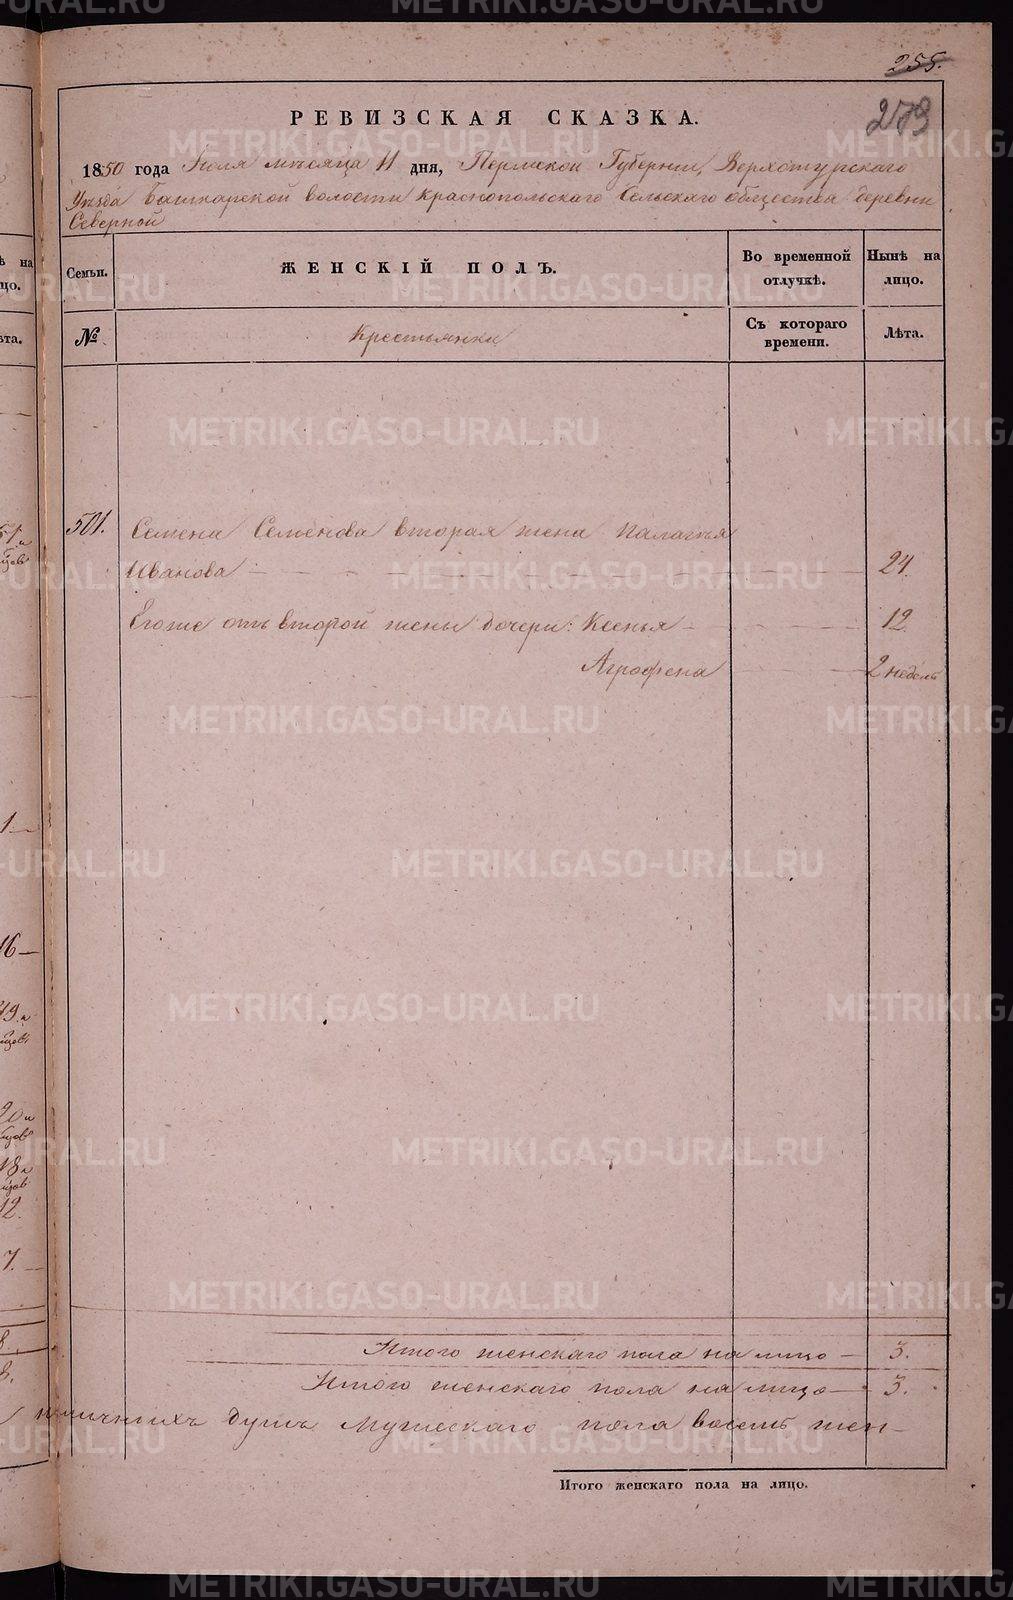 255.
279
РЕВИЗСКАЯ СКАЗКА.
1850 года Июля мѣсяца 11 дня, Пермской Губернии, Верхотурскаго
Уѣзда Башкарской волости Краснопольскаго Сельскаго общества деревни
Северной
Семьи.
ЖЕНСКІЙ ПОЛЪ.
Во временной отлучкѣ.
Нынѣ на лицо.
№
Крестьянки
Съ котораго времени.
Лѣта.
501. Семена Семенова вторая жена Палагья
Иванова 24.
Егоже отъ второй жены дочери: Ксенья 12.
Агрофена 2 недель
Итого женскаго пола на лицо 3.
Итого женскаго пола на лицо 3.
наличныхъ душъ мужескаго пола восемь жен-
Итого женскаго пола на лицо.
METRIKI.GASO-URAL.RU